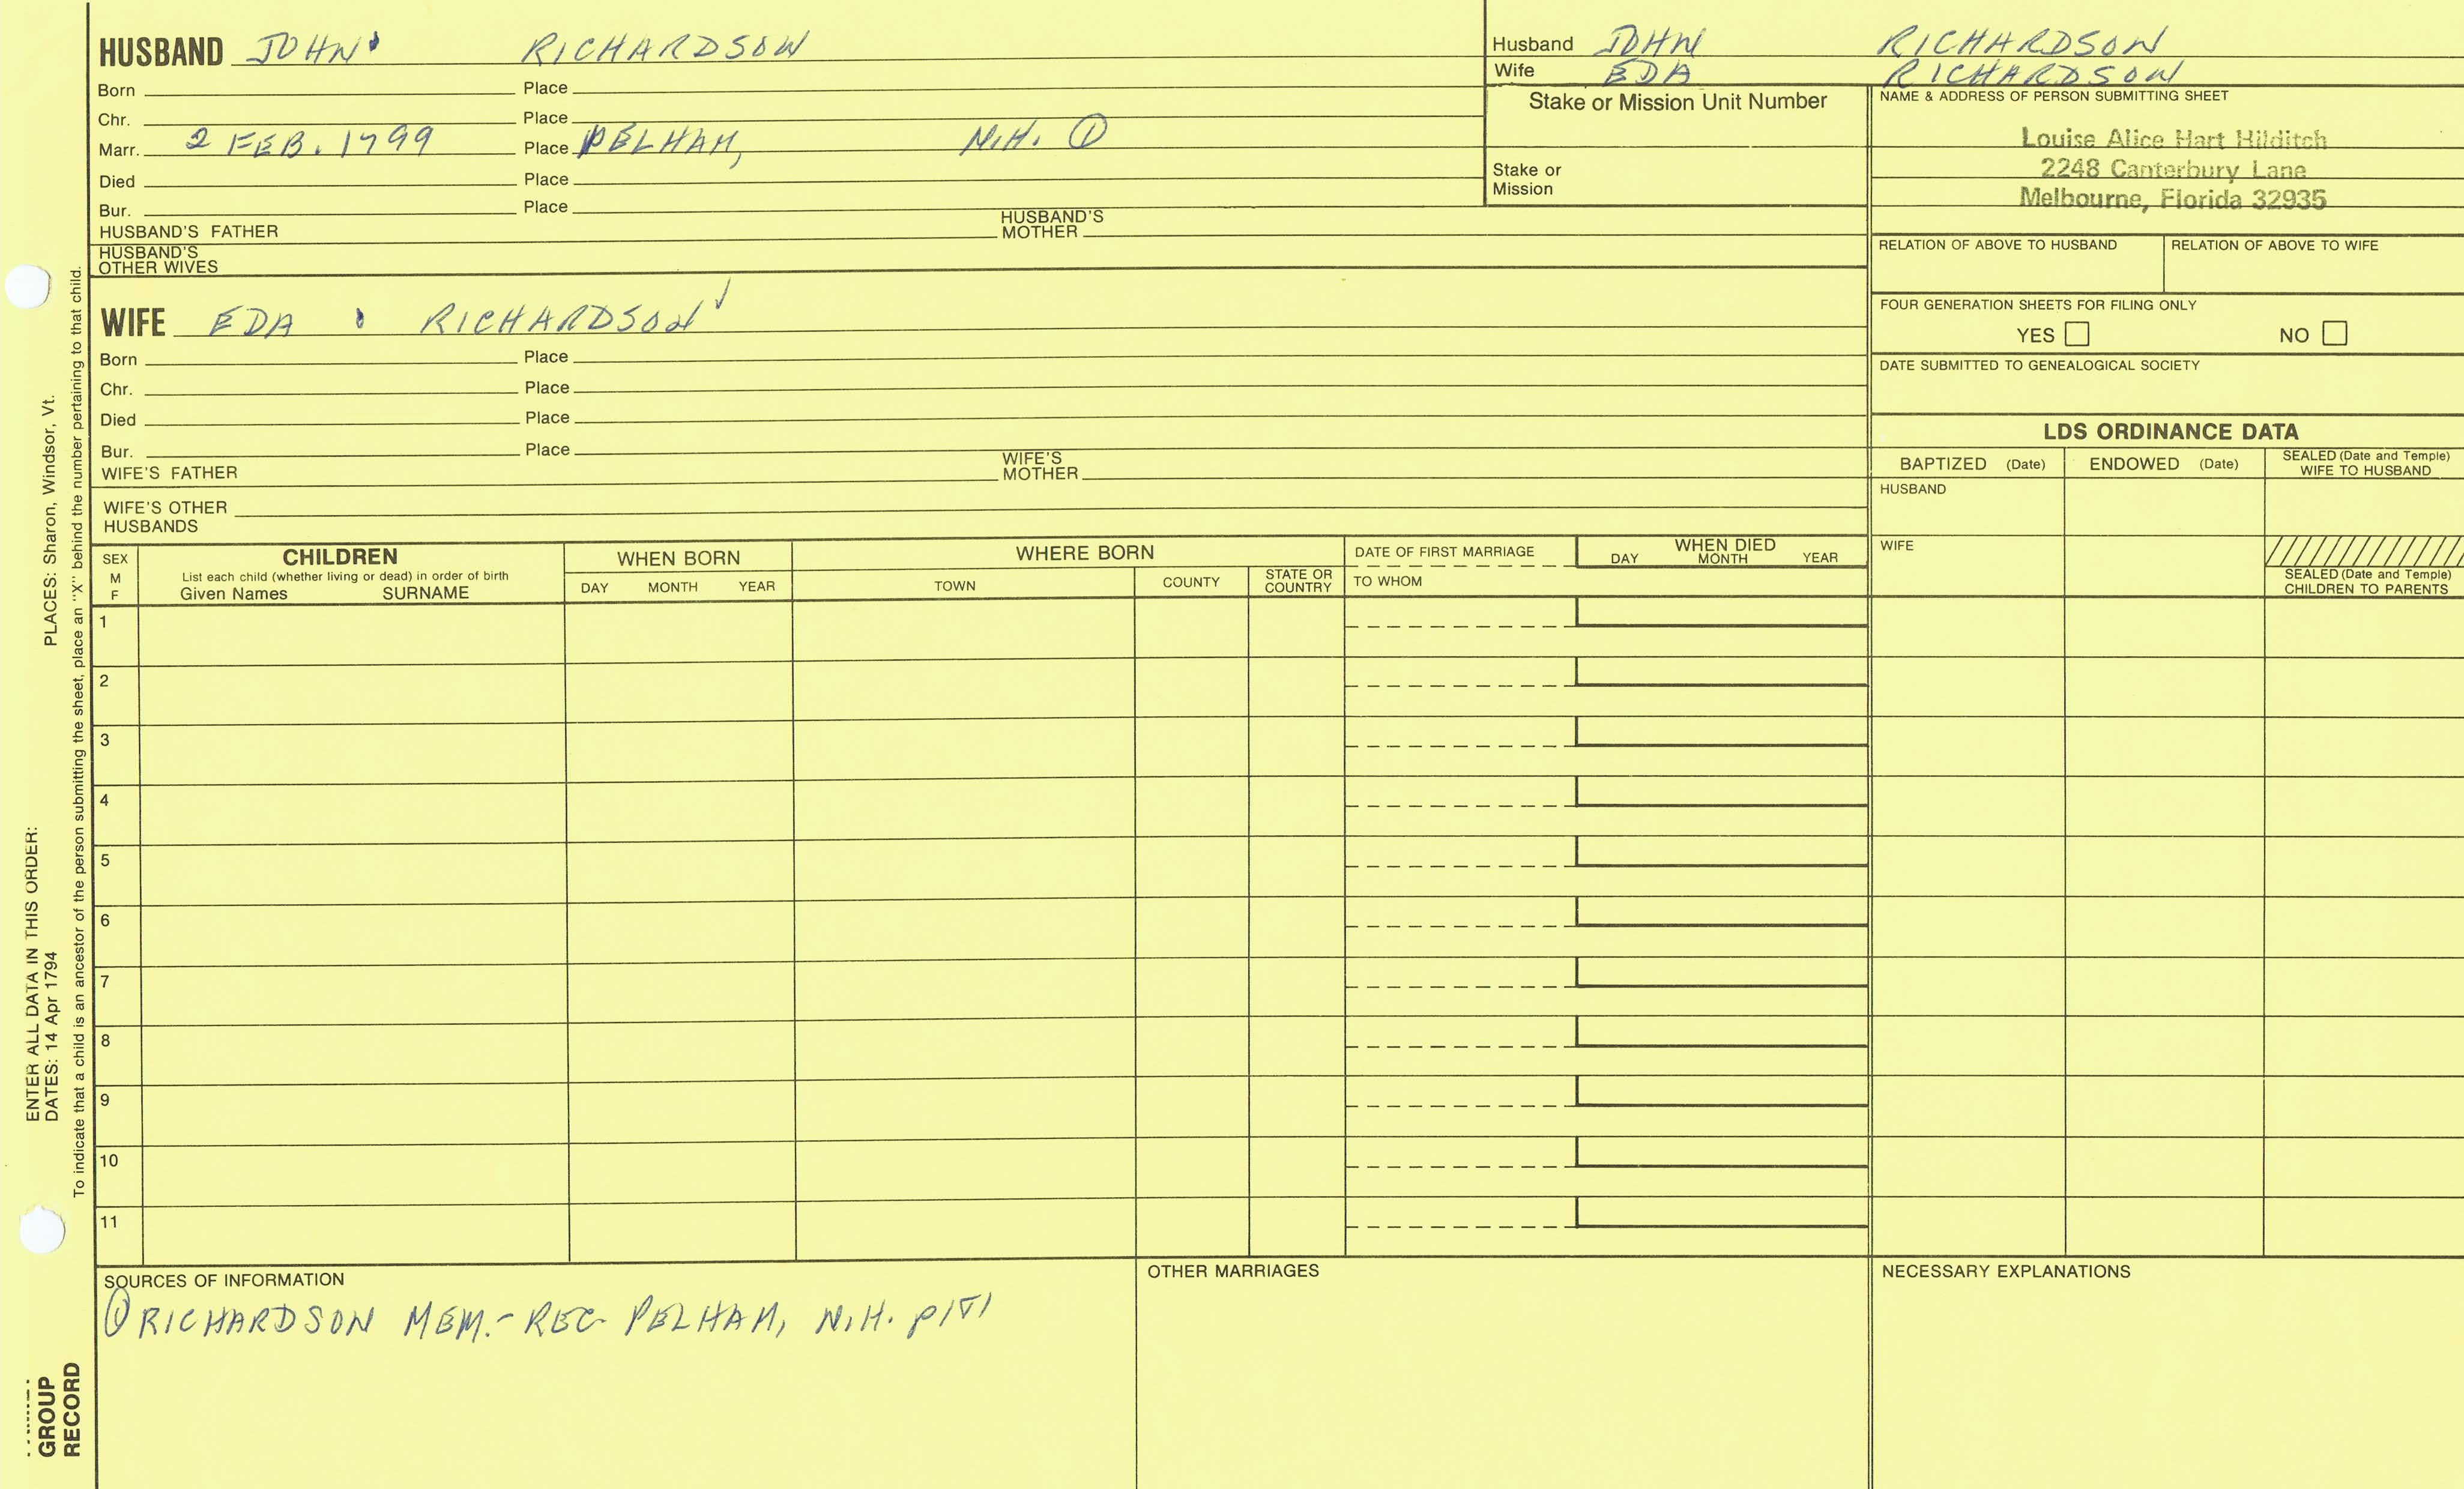 HUSBAND JOHN RICHARDSON
Born Place
Chr. Place
Marr. 2 FEB. 1799 Place PELHAM, N.H. ①
Died Place
Bur. Place
HUSBAND'S FATHER HUSBAND'S MOTHER
HUSBAND'S OTHER WIVES
Husband JOHN RICHARDSON
Wife EDA RICHARDSON
Stake or Mission Unit Number
Stake or Mission
NAME & ADDRESS OF PERSON SUBMITTING SHEET
Louise Alice Hart Hilditch
2248 Canterbury Lane
Melbourne, Florida 32935
RELATION OF ABOVE TO HUSBAND RELATION OF ABOVE TO WIFE
FOUR GENERATION SHEETS FOR FILING ONLY
YES NO
DATE SUBMITTED TO GENEALOGICAL SOCIETY
WIFE EDA RICHARDSON
Born Place
Chr. Place
Died Place
Bur. Place
WIFE'S FATHER WIFE'S MOTHER
WIFE'S OTHER HUSBANDS
LDS ORDINANCE DATA
BAPTIZED (Date) ENDOWED (Date) SEALED (Date and Temple) WIFE TO HUSBAND
HUSBAND
WIFE
SEALED (Date and Temple) CHILDREN TO PARENTS
SEX M F
CHILDREN
List each child (whether living or dead) in order of birth
Given Names SURNAME
WHEN BORN
DAY MONTH YEAR
WHERE BORN
TOWN COUNTY STATE OR COUNTRY
DATE OF FIRST MARRIAGE
TO WHOM
WHEN DIED
DAY MONTH YEAR
1
2
3
4
5
6
7
8
9
10
11
SOURCES OF INFORMATION
① RICHARDSON MEM.- REC- PELHAM, N.H.
OTHER MARRIAGES
NECESSARY EXPLANATIONS
ENTER ALL DATA IN THIS ORDER:
DATES: 14 Apr 1794 PLACES: Sharon, Windsor, Vt.
To indicate that a child is an ancestor of the person submitting the sheet, place an "X" behind the number pertaining to that child.
GROUP
RECORD